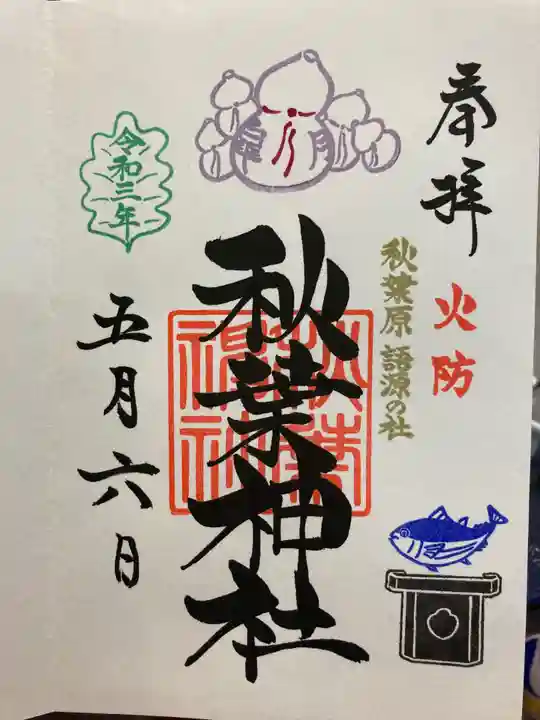 奉拝
火防
秋葉原語源の社
秋葉神社
秋葉神社
令和三年
五月六日